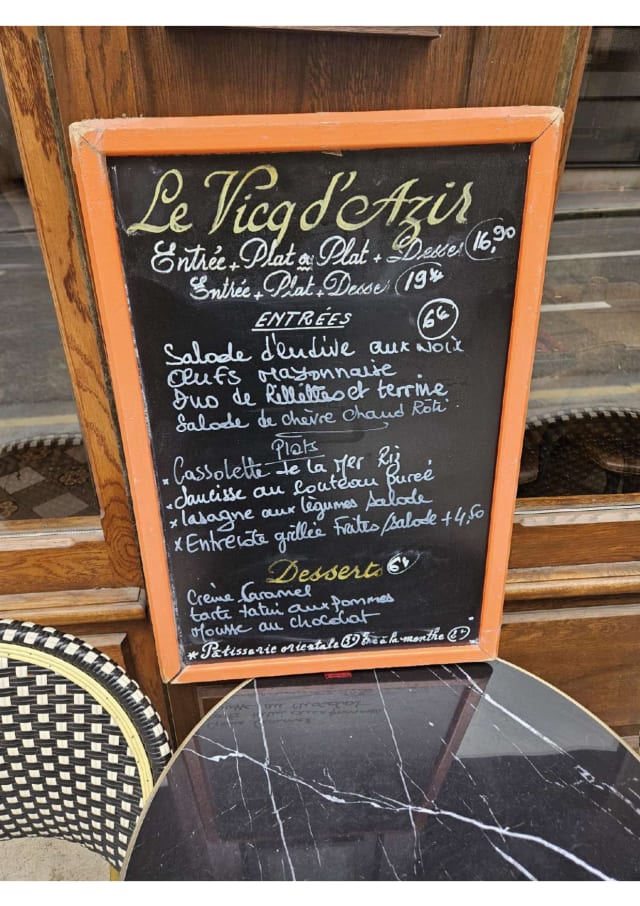 Le Vicq d'Azir
Entrée + Plat ou Plat + Desse 16,90
Entrée + Plat + Desse 19€
ENTRÉES 6€
Salade d'endive aux noix
Œufs mayonnaise
Duo de Rillettes et terrine
Salade de chèvre chaud Rôti
Plats
Cassolette de la Mer Riz
x Saucisse au couteau purée
x lasagne aux légumes Salade
x Entrecote grillée Frites/salade + 4,50
Desserts 6€
Crème Caramel
tarte tatin aux pommes
Mousse au chocolat
* Pâtisserie orientale à la menthe